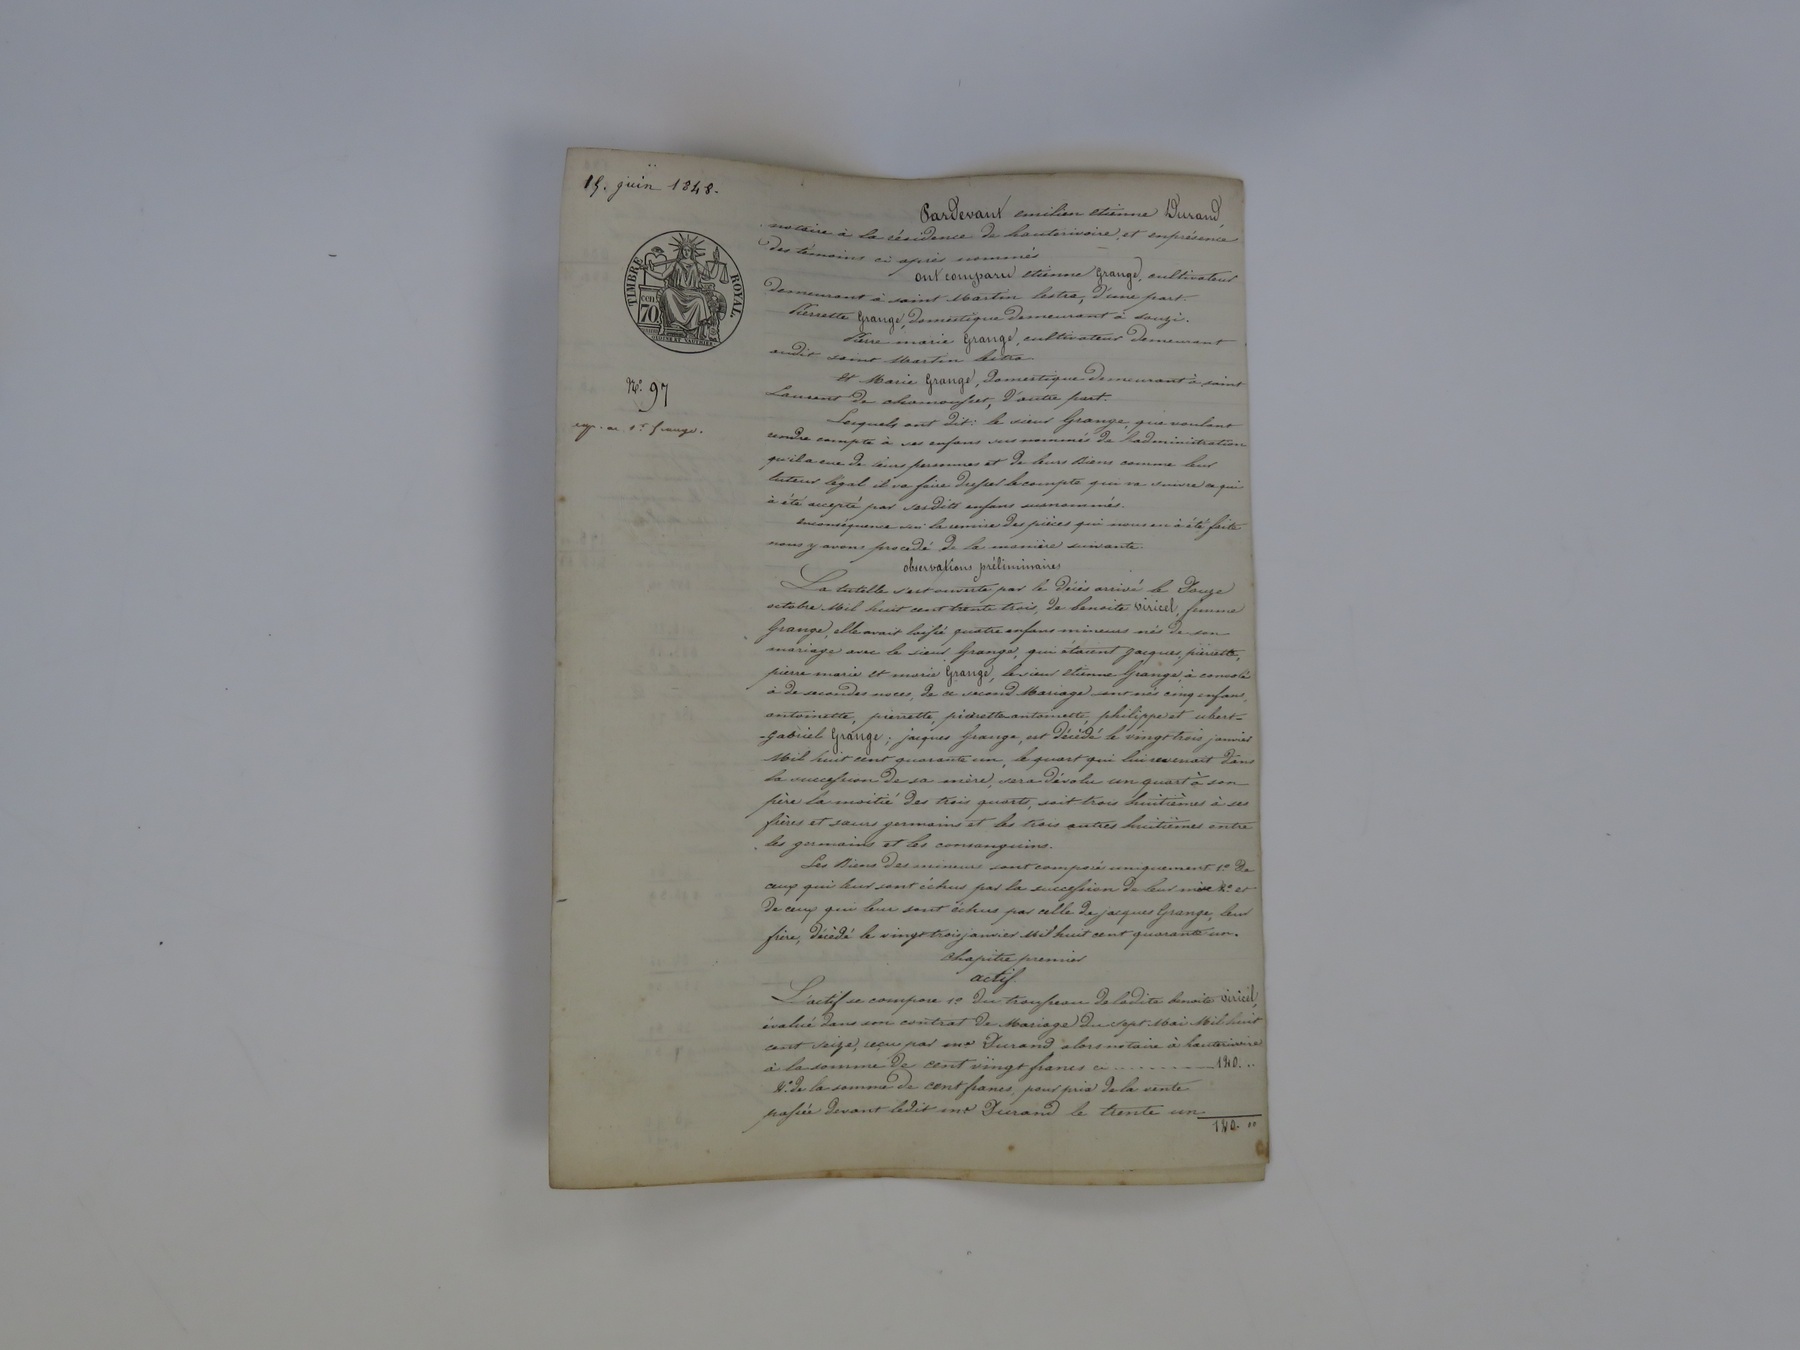 15. juin 1848.
TIMBRE ROYAL.
cen
70
N.° 97
exp. au s.r Grange.
Pardevant emilien etienne Durand
notaire à la résidence de hauterivoire, et enprésence
des témoins ci après nommés
ont comparu etienne Grange, cultivateur
demeurant à saint Martin lestra, d'une part.
Pierrette Grange, domestique demeurant à Souzi.
Pierre marie Grange, cultivateur demeurant
audit saint Martin lestra
Et Marie Grange, domestique demeurant à saint
Laurent de chamousset, d'autre part.
Lesquels ont dit: le sieur Grange, que voulant
rendre compte à ses enfans sus nommés de l'administration
qu'il a eue de leurs personnes et de leurs Biens comme leur
tuteur légal il va faire dresser le compte qui va suivre ce qui
à été accepté par sesdits enfans susnommés.
enconséquence sur la remise des pièces qui nous en à été faite
nous y avons procédé de la manière suivante.
observations préliminaires
La tutelle s'est ouverte par le décès arrivé le Douze
octobre Mil huit cent trente trois, de benoite Viricel, femme
Grange, elle avait laissé quatre enfans mineurs nés de son
mariage avec le sieur Grange, qui étaient jacques, pierrette,
pierre marie et marie Grange, le sieur etienne Grange, à convolé
à de secondes noces, de ce second Mariage sont nés cinq enfans,
antoinette, pierrette, pierrette antoinette, philippe et
gabriel Grange; jacques Grange, est décédé le vingt trois janvier
Mil huit cent quarante un, le quart qui lui revenait dans
la succession de sa mère, sera dévolu un quart à son
père la moitié des trois quarts, soit trois huitièmes à ses
frères et sœurs germains et les trois autres huitièmes entre
les germains et les consanguins.
Les Biens des mineurs sont composé uniquement 1.° De
ceux qui leur sont échus par la succession de leur mère 2.° et
de ceux qui leur sont échus par celle de jacques Grange, leur
frère, décédé le vingt trois janvier Mil huit cent quarante un.
chapitre premier
actif.
L'actif se compose 1.° du trousseau de ladite benoite Viricel,
évalué dans son contrat de Mariage du sept Mai Mil huit
cent seize, reçu par me Durand alors notaire à hauterivoire
à la somme de cent vingt francs ci . . . . . 120. ..
2.° de la somme de cent francs, pour prix de la vente
passée devant ledit me Durand le trente un
120. "